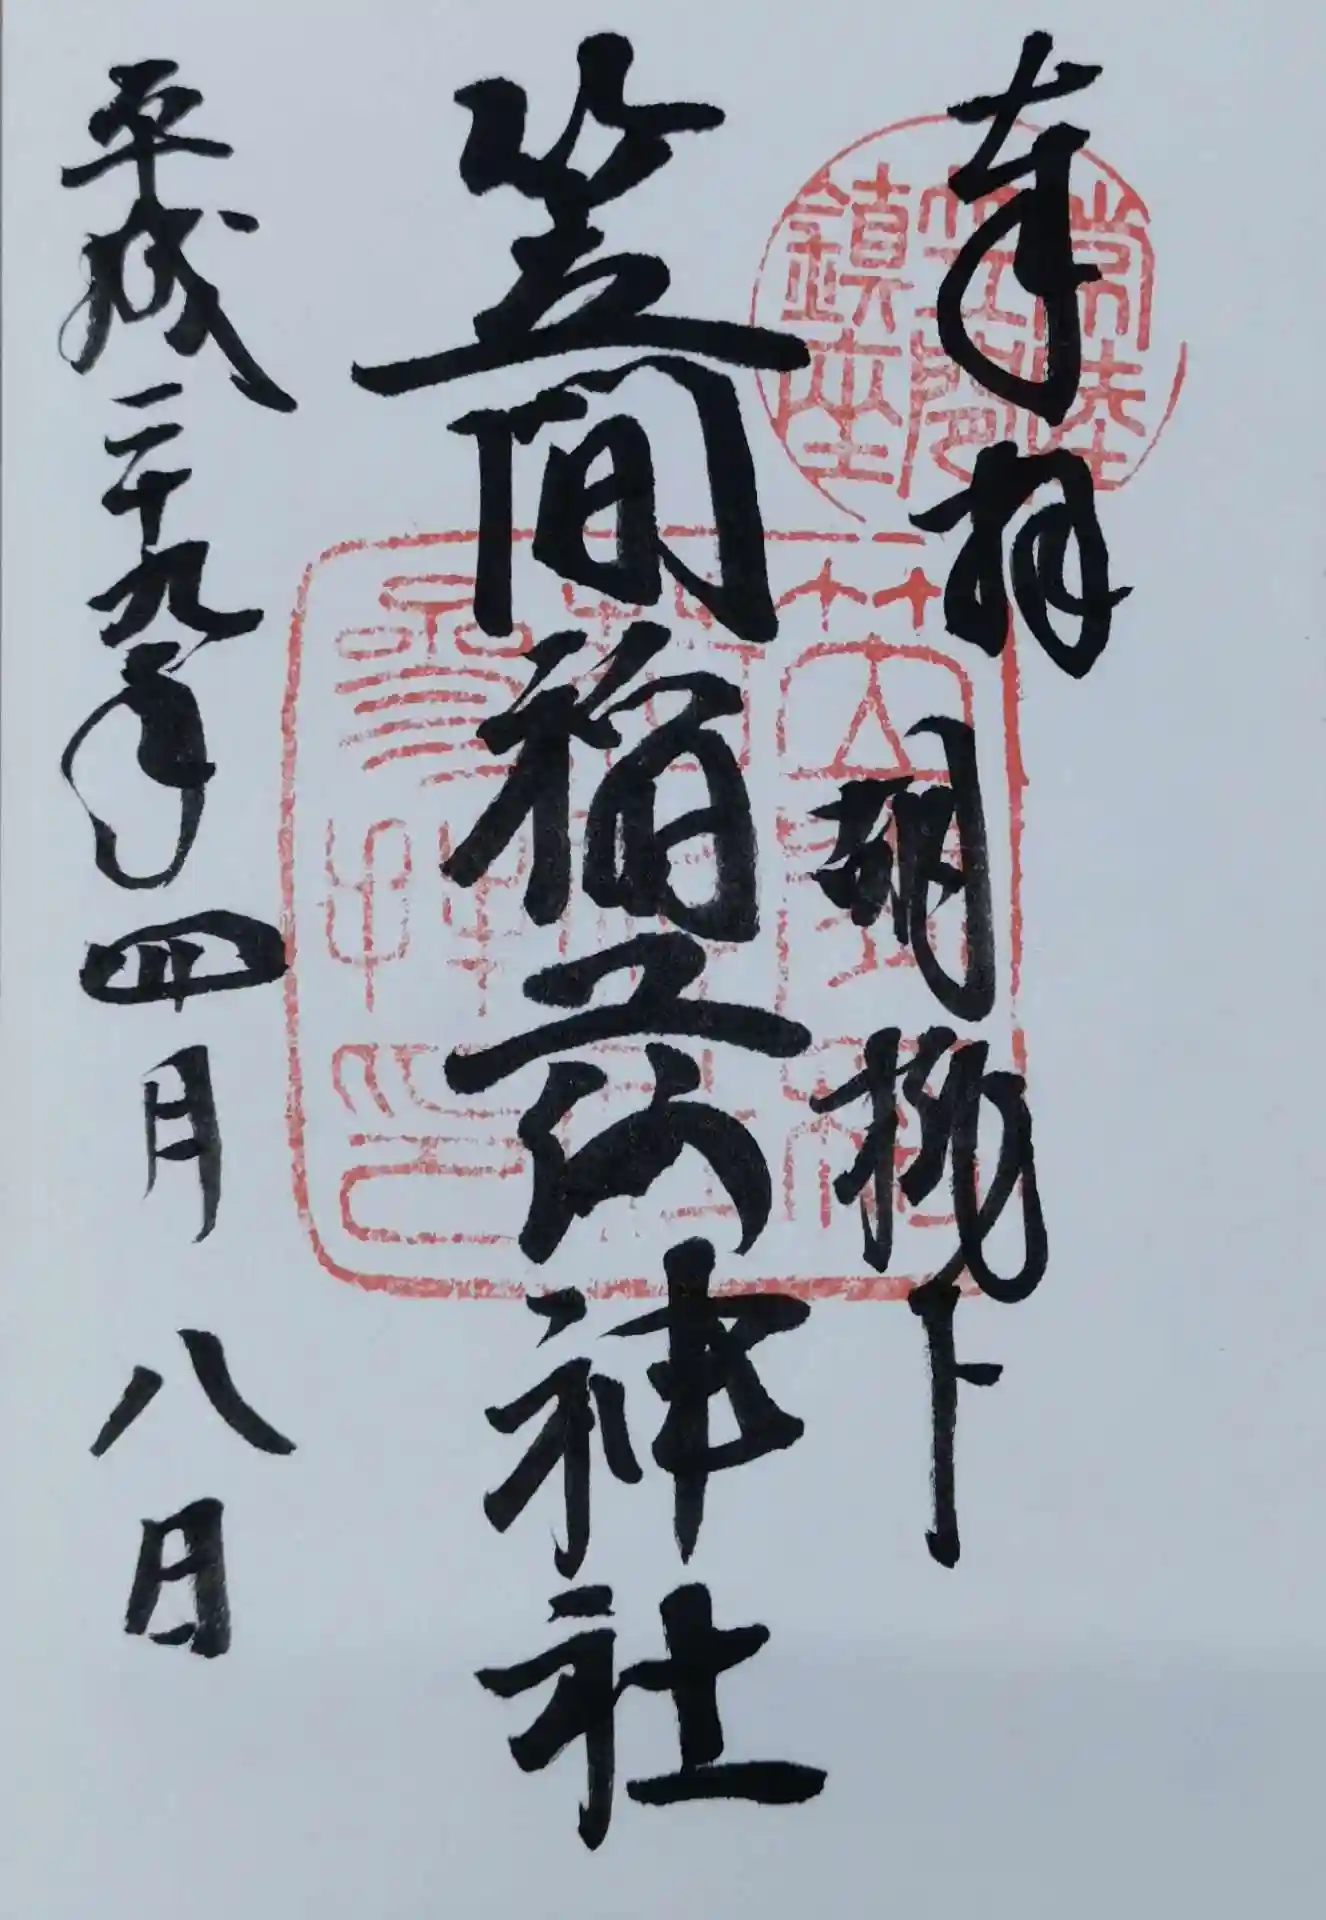 奉拝 胡桃下
常陸
笠間
鎮座
笠間稲荷神社
平成二十九年四月八日